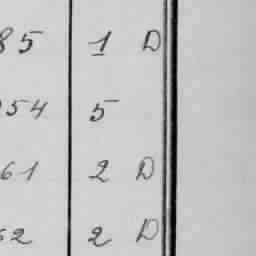 85 1 D
954 5
61 2 D
62 2 D